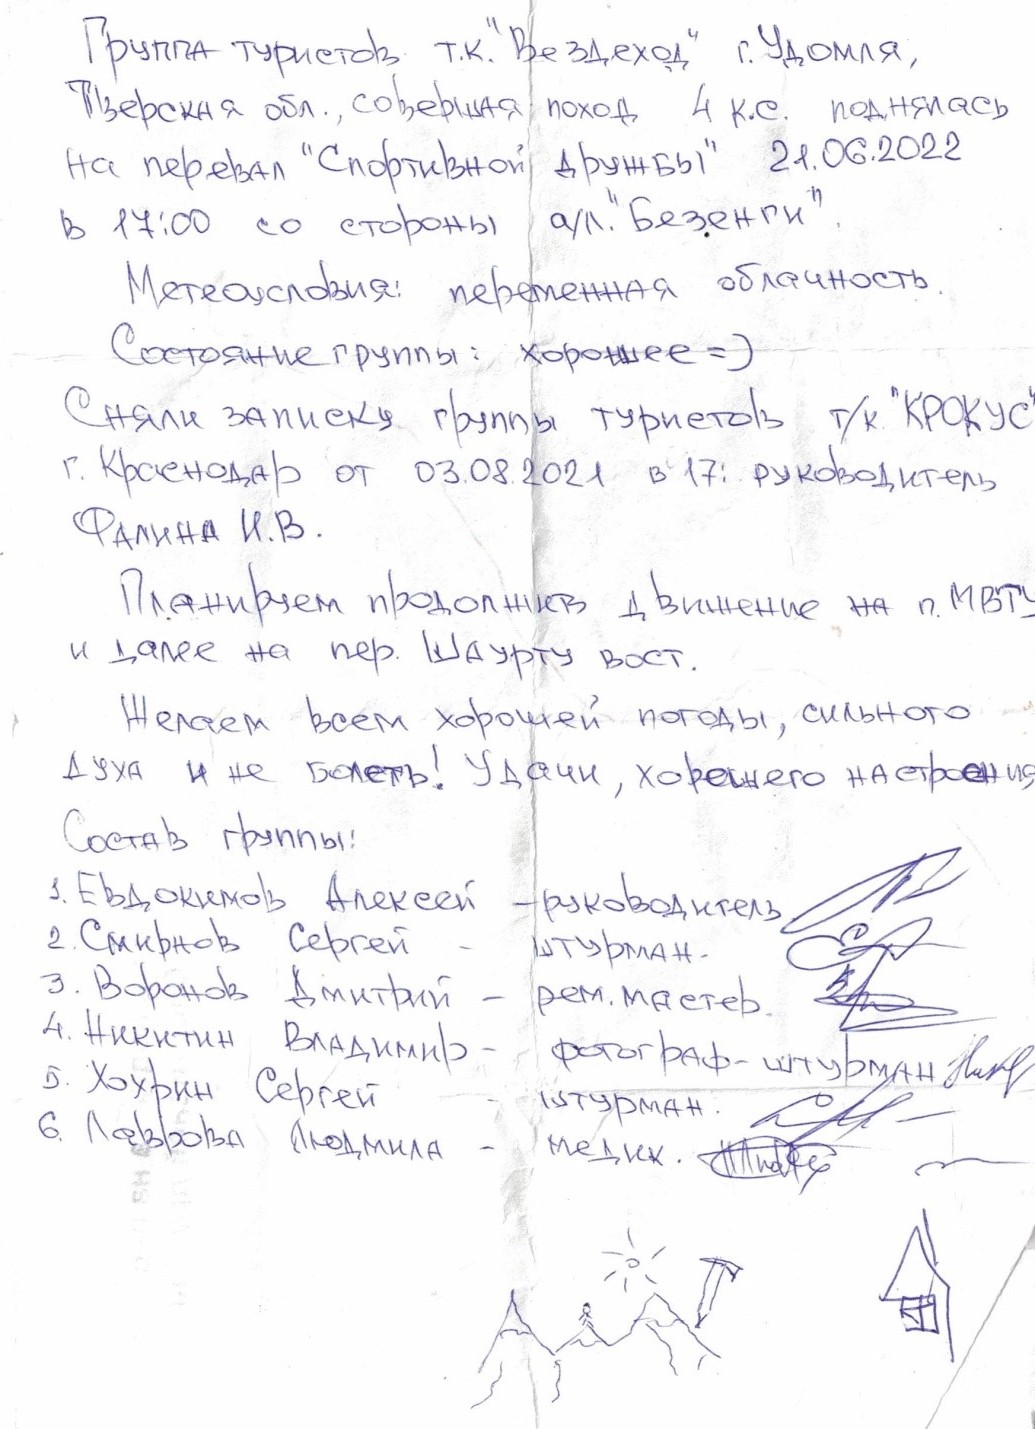 Группа туристов т.к. "Вездеход" г. Удомля,
Тверская обл., совершая поход 4 к.с. поднялась
на перевал "Спортивной дружбы" 21.06.2022
в 17:00 со стороны а/л. "Безенги".
Метеоусловия: переменная облачность.
Состояние группы: хорошее =)
Сняли записку группы туристов т/к. "КРОКУС"
г. Краснодар от 03.08.2021 в 17: руководитель
Фалина И.В.
Планируем продолжив движение на п. МВТУ
и далее на пер. Шаурту вост.
Желаем всем хорошей погоды, сильного
духа и не болеть! Удачи, хорошего настроения
Состав группы:
1. Евдокимов Алексей - руководитель
2. Смирнов Сергей - штурман.
3. Воронов Дмитрий - рем. мастер.
4. Никитин Владимир - фотограф-штурман
5. Хохрин Сергей - штурман.
6. Лаврова Людмила - медик.